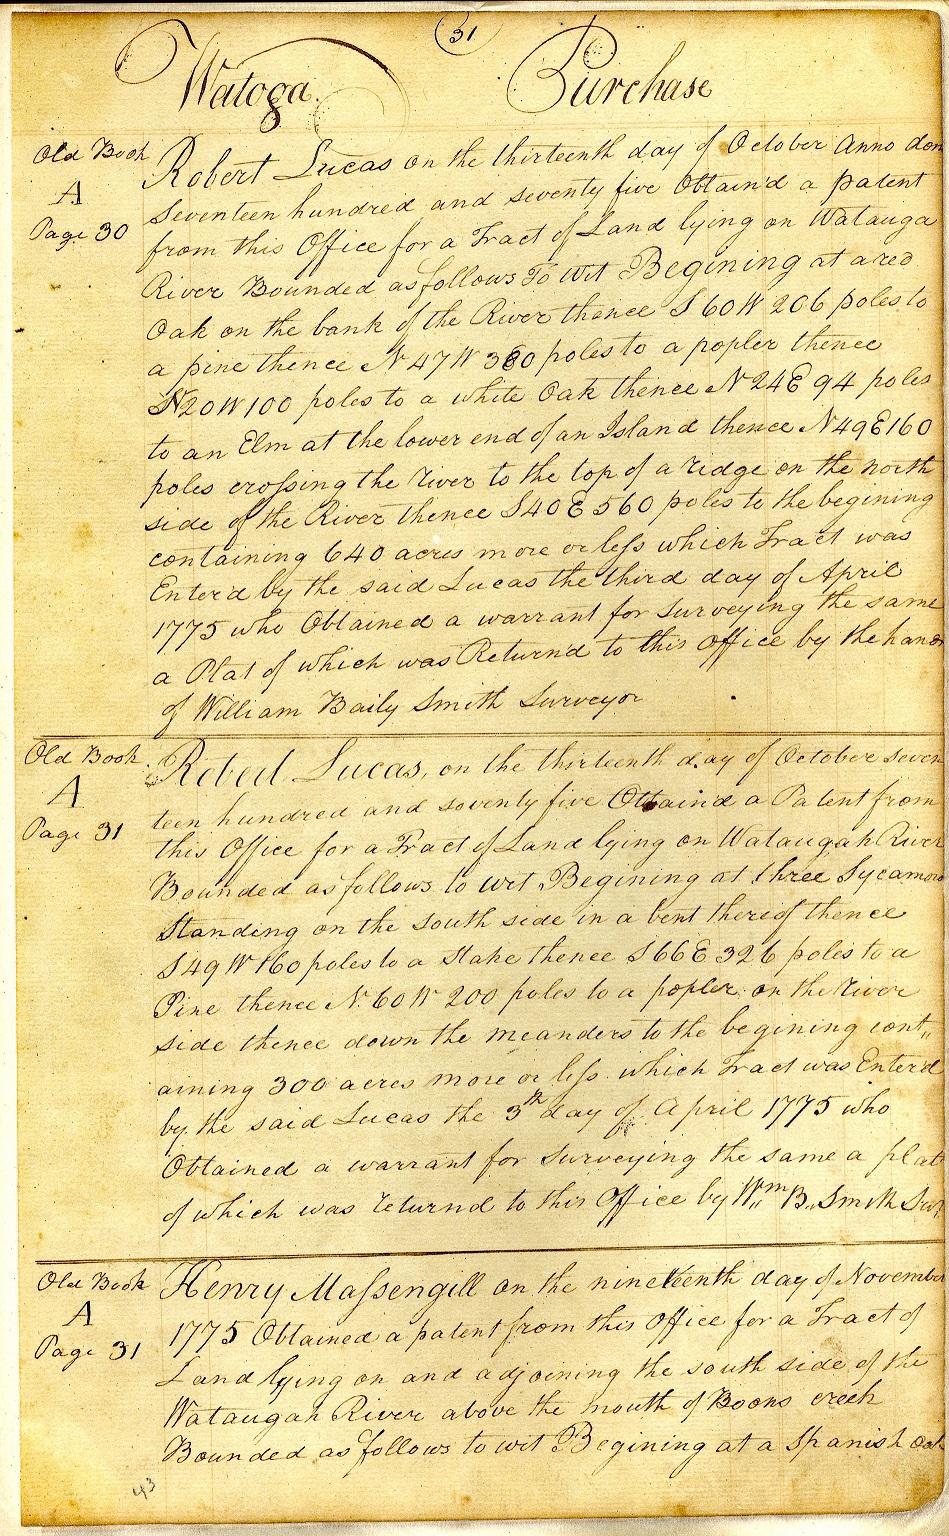 31
Watoga Purchase
Old Book
A
Page 30
Robert Lucas on the thirteenth day of October Anno dom
Seventeen hundred and seventy five Obtain'd a patent
from this Office for a Tract of Land lying on Watauga
River Bounded as follows To wit Begining at a red
Oak on the bank of the River thence S 60 W 206 poles to
a pine thence N 47 W 380 poles to a popler thence
N 20 W 100 poles to a white Oak thence N 24 E 94 poles
to an Elm at the lower end of an Island thence N 49 E 160
poles crossing the river to the top of a ridge on the north
side of the River thence S 40 E 560 poles to the begining
containing 640 acres more or less which Tract was
Enter'd by the said Lucas the third day of April
1775 who Obtained a warrant for surveying the same
a Plat of which was Return'd to this Office by the hands
of William Baily Smith Surveyor
Old Book
A
Page 31
Robert Lucas, on the thirteenth day of October seven
teen hundred and seventy five Obtain'd a Patent from
this Office for a Tract of Land lying on Wataugah River
Bounded as follows to wit Begining at three Sycamore
Standing on the south side in a bent thereof thence
S 49 W 160 poles to a Stake thence S 66 E 326 poles to a
Pine thence N. 60 W 200 poles to a popler on the River
side thence down the meanders to the begining cont,,
aining 300 acres more or less which Tract was Enter'd
by the said Lucas the 3th day of April 1775 who
Obtained a warrant for surveying the same a plat
of which was returnd to this Office by Wm,, B,, Smith Sur
Old Book
A
Page 31
Henry Massengill on the nineteenth day of November
1775 Obtained a patent from this Office for a Tract of
Land lying on and adjoining the south side of the
Wataugah River above the mouth of Boons creek
Bounded as follows to wit Begining at a Spanish oak
43